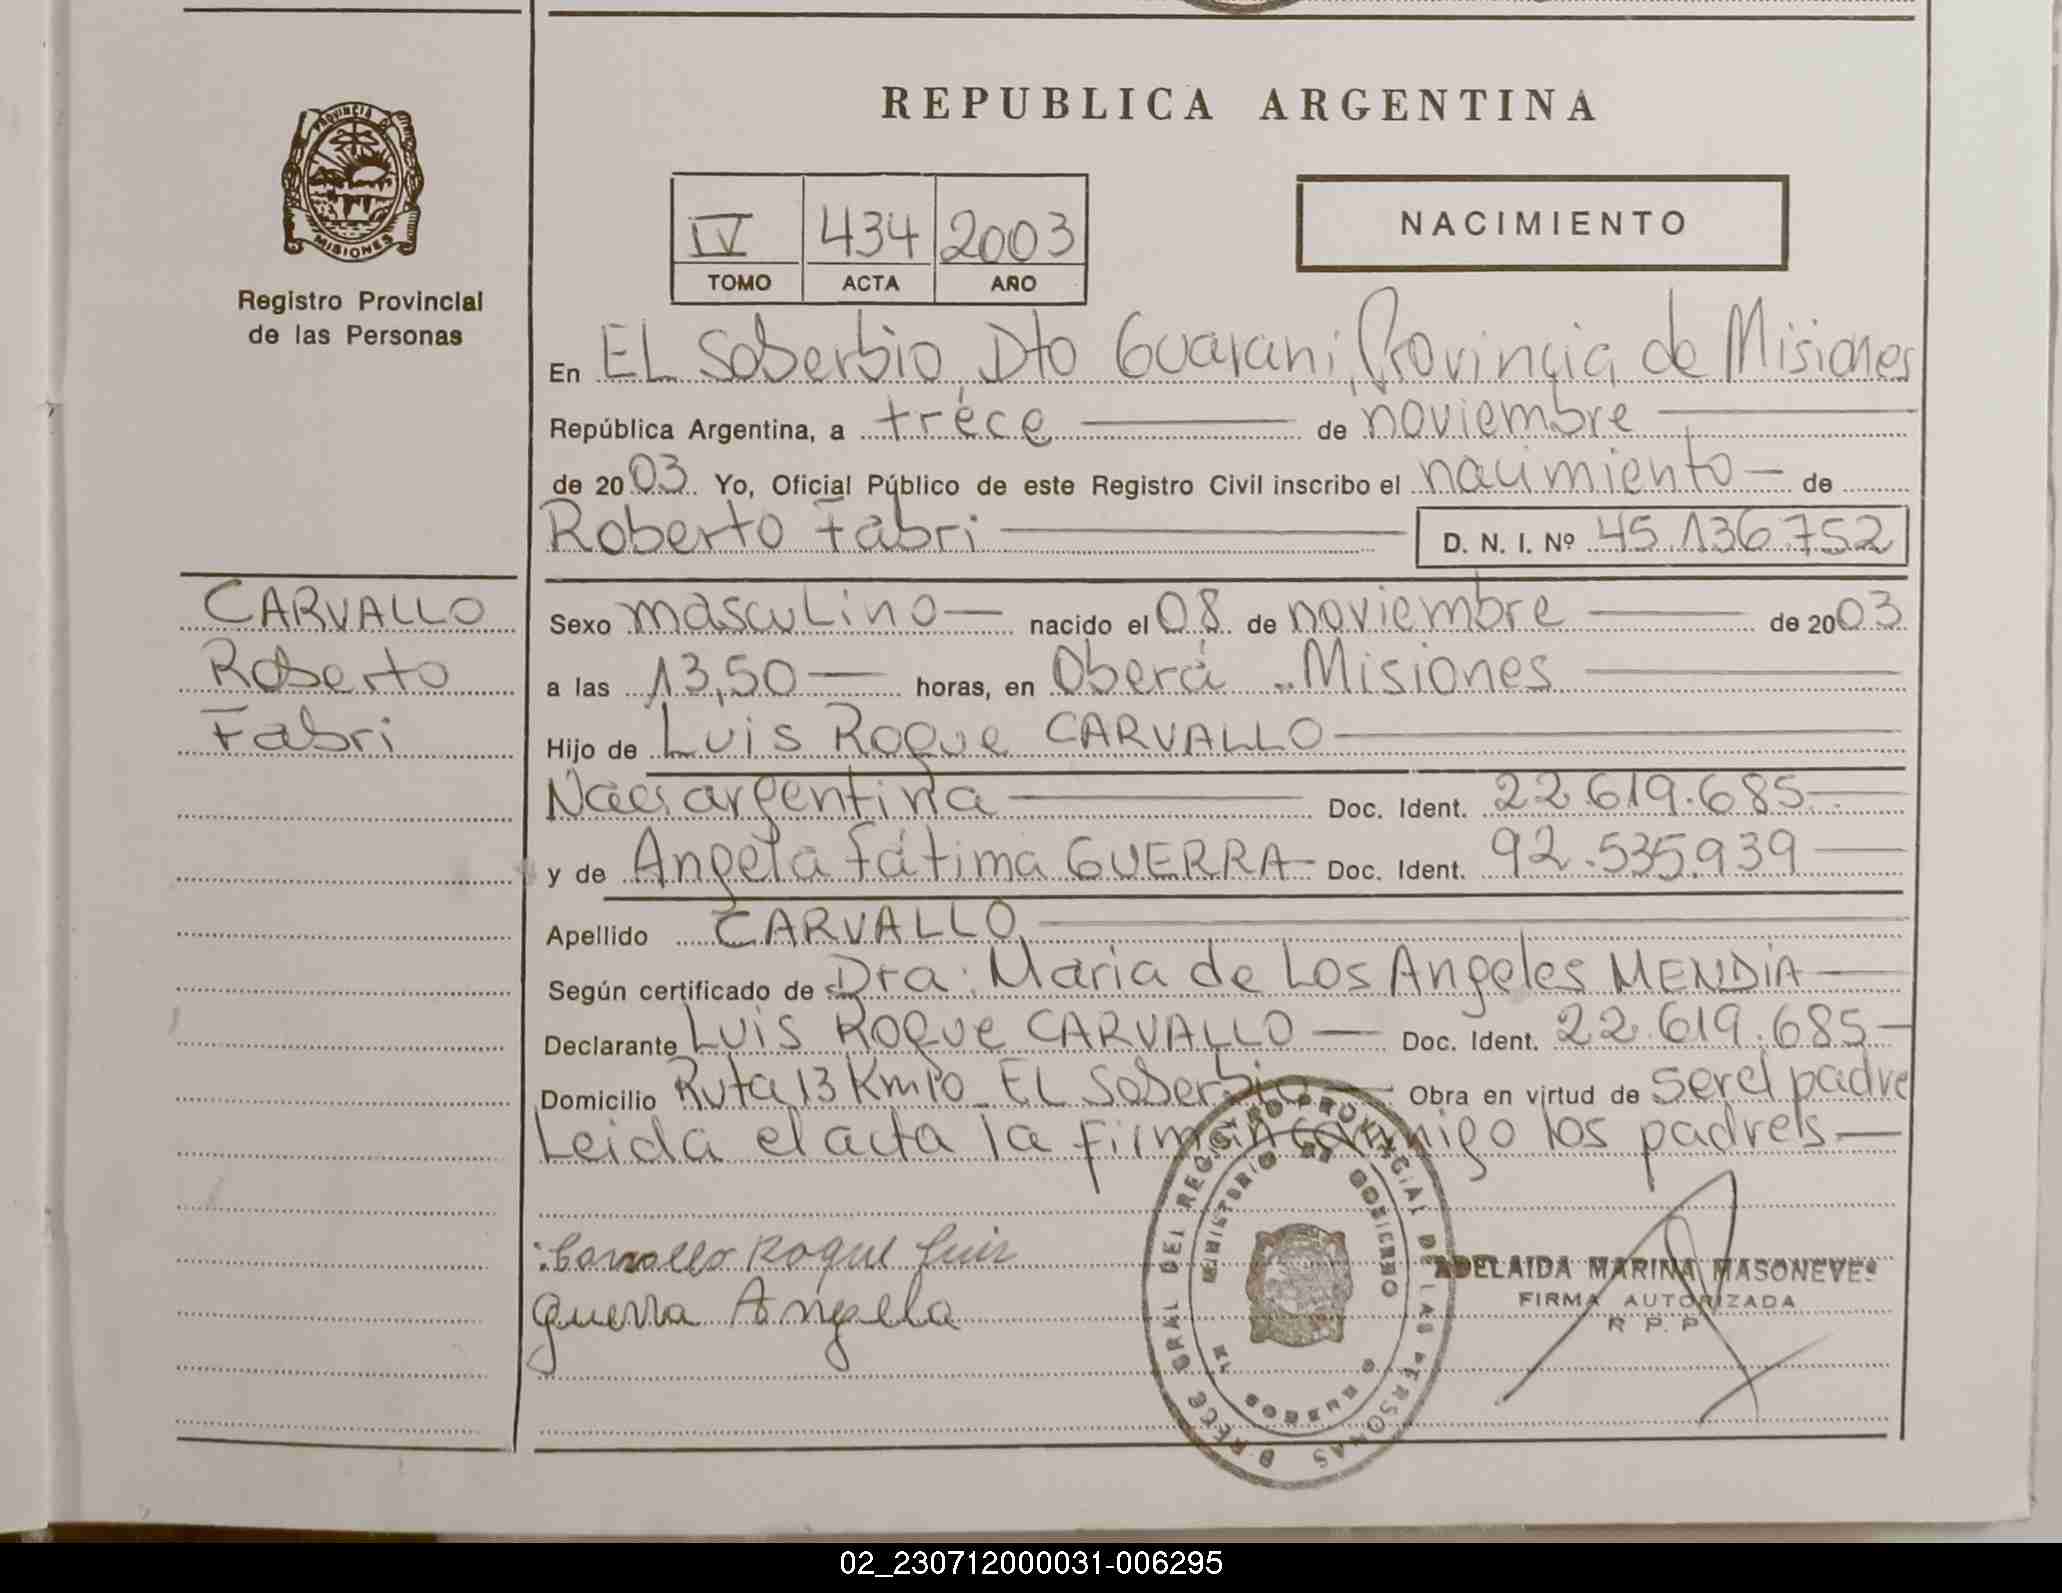 REPUBLICA ARGENTINA
PROVINCIA DE
MISIONES
Registro Provincial
de las Personas
IV 434 2003
TOMO ACTA AÑO
NACIMIENTO
En EL Soberbio, Dto Guarani, Provincia de Misiones
República Argentina, a trece de noviembre
de 2003 Yo, Oficial Público de este Registro Civil inscribo el nacimiento de
Roberto Fabri D. N. I. Nº 45.136.752
CARVALLO
Roberto
Fabri
Sexo masculino nacido el 08 de noviembre de 2003
a las 13,50 horas, en Oberá - Misiones
Hijo de Luis Roque CARVALLO
Nac. argentina Doc. Ident. 22.619.685
y de Angela Fátima GUERRA Doc. Ident. 92.535.939
Apellido CARVALLO
Según certificado de Dra. Maria de Los Angeles MENDIA
Declarante Luis Roque CARVALLO Doc. Ident. 22.619.685
Domicilio Ruta 13 Km 10 EL Soberbio Obra en virtud de ser el padre
Leida el acta la firman conmigo los padres
Carvallo Roque Luis
guerra Angela
REGISTRO PROVINCIAL DE LAS PERSONAS
MINISTERIO DE GOBIERNO
ADELAIDA MARINA MASONEVES
FIRMA AUTORIZADA
R. P. P.
02_230712000031-006295